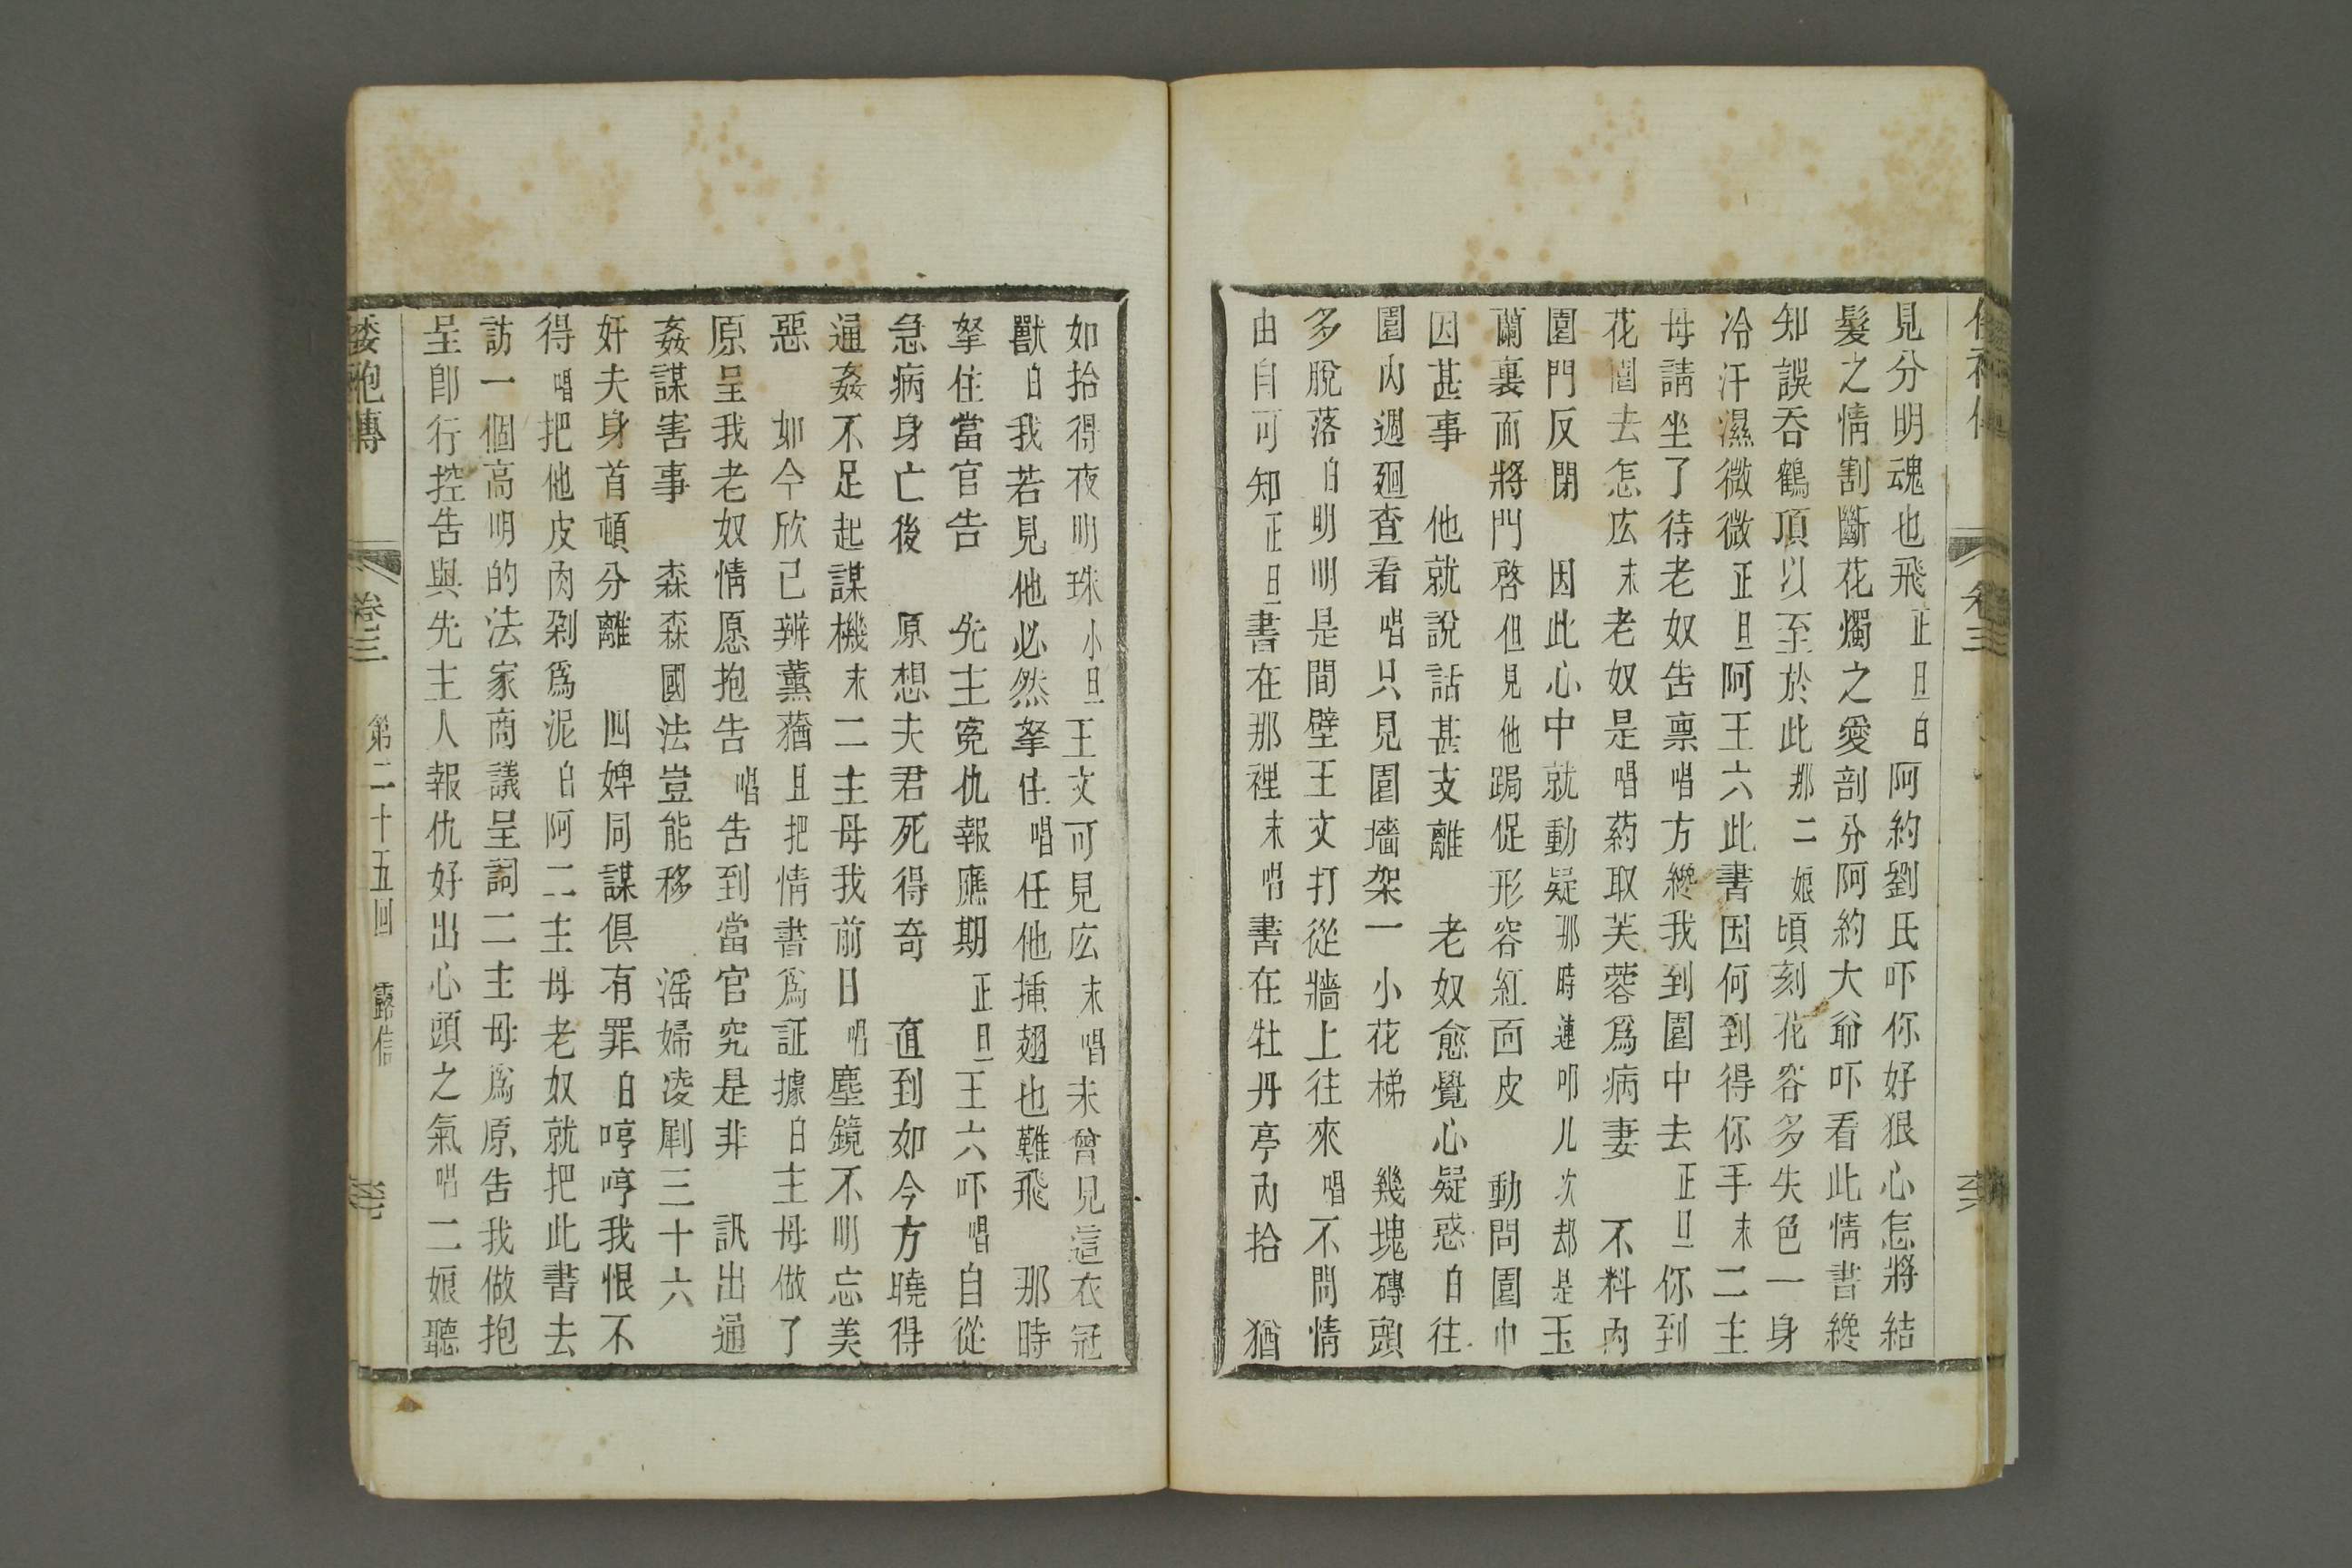 見分明魂也飛正旦白阿約劉氏吓你好狠心怎將結
髮之情割斷花燭之愛剖分阿約大爺吓看此情書纔
知誤吞鶴頂以至於此那二娘頃刻花容多失色一身
冷汗濕微微正旦阿王六此書因何到得你手末二主
母請坐了待老奴告禀唱方纔我到園中去正旦你到
花園去怎庅末老奴是唱葯取芙蓉爲病妻 不料内
園門反閉 因此心中就動疑那時連叩儿次却是玉
蘭裏面將門啓但見他跼促形容紅面皮 動問園中
因甚事 他就說話甚支離 老奴愈覺心疑惑白往
園内週廻查看唱只見園墻架一小花梯 幾塊磚頭
多脫落白明明是間壁王文打從牆上往來唱不問情
由自可知正旦書在那裡末唱書在牡丹亭内拾 猶
如拾得夜明珠小旦王文可見庅末唱未曾見這衣冠
獸白我若見他必然拏住唱任他揷翅也難飛 那時
拏住當官告 先主寃仇報應期正旦王六吓唱自從
急病身亡後 原想夫君死得奇 直到如今方曉得
通姦不足起謀機末二主母我前日唱塵鏡不明忘美
惡 如今欣已辨薰蕕且把情書爲証據白主母做了
原呈我老奴情愿抱告唱告到當官究是非 訊出通
姦謀害事 森森國法豈能移 淫婦凌剮三十六
奸夫身首頓分離 四婢同謀俱有罪白哼哼我恨不
得唱把他皮肉剁爲泥白阿二主母老奴就把此書去
訪一個高明的法家商議呈詞二主母爲原告我做抱
呈卽行控告與先主人報仇好出心頭之氣唱二娘聽
倭袍傳 卷三 第二十五回 露信